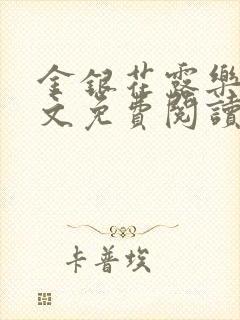 金銀花露樂
文免費閱讀
卡普埃